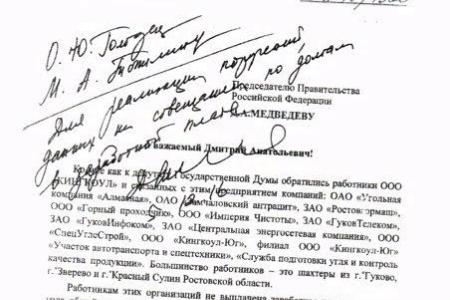 О. Ю. Голодец
М. А. Топилину
Для реализации поручений,
данных на совещаниях по долгам
в заработной плате
Председателю Правительства
Российской Федерации
Д.А.МЕДВЕДЕВУ
Уважаемый Дмитрий Анатольевич!
Ко мне как к депутату Государственной Думы обратились работники ООО
«КИНГКОУЛ» и связанных с этим предприятием компаний: ОАО «Угольная
компания «Алмазная», ОАО «Замчаловский антрацит», ЗАО «Ростовгормаш»,
ООО «Горный проходчик», ООО «Империя Чистоты», ЗАО «ГуковТелеком»,
ЗАО «ГуковИнфоком», ЗАО «Центральная энергосетевая компания», ООО
«СпецУглеСтрой», ООО «Кингкоул-Юг», филиал ООО «Кингкоул-Юг»
«Участок автотранспорта и спецтехники», «Служба подготовки угля и контроль
качества продукции». Большинство работников – это шахтеры из г.Гуково,
г.Зверево и г.Красный Сулин Ростовской области.
Работникам этих организаций не выплачена